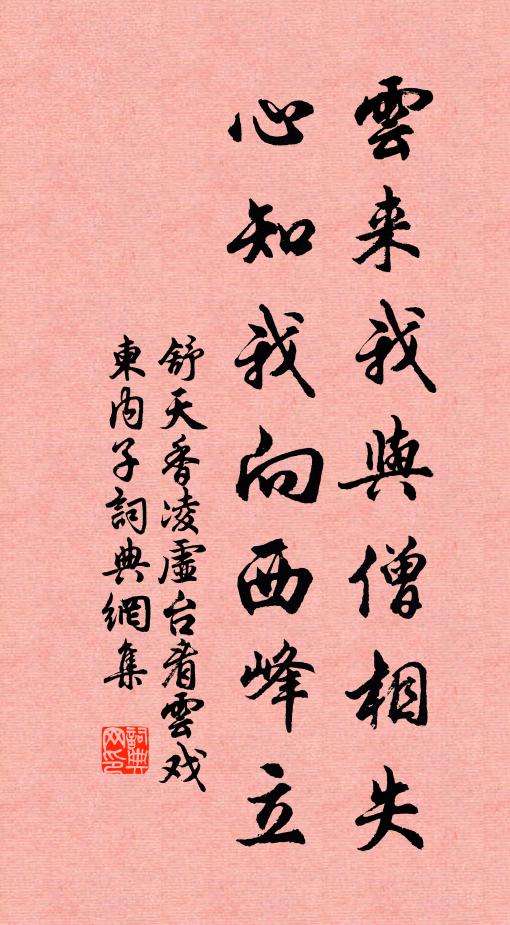 雲来我與僧相失
心知我向西峰立
舒天香凌虛台看雲戏
東内子詞典網集
詞典网印